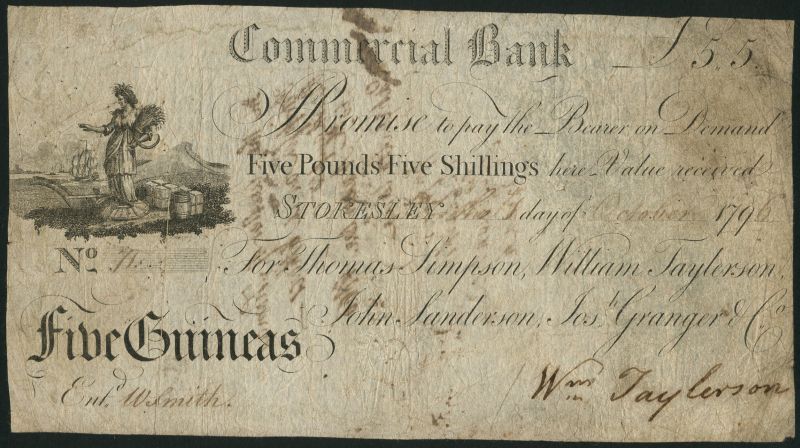 Commercial Bank £5.5.
I Promise to pay the Bearer on Demand
Five Pounds Five Shillings here Value received
STOKESLEY day of October 1796
No
For Thomas Simpson, William Taylerson,
John Sanderson, Jos.h Granger & Co.
Five Guineas
Ent.d W Smith.
Wm Taylerson